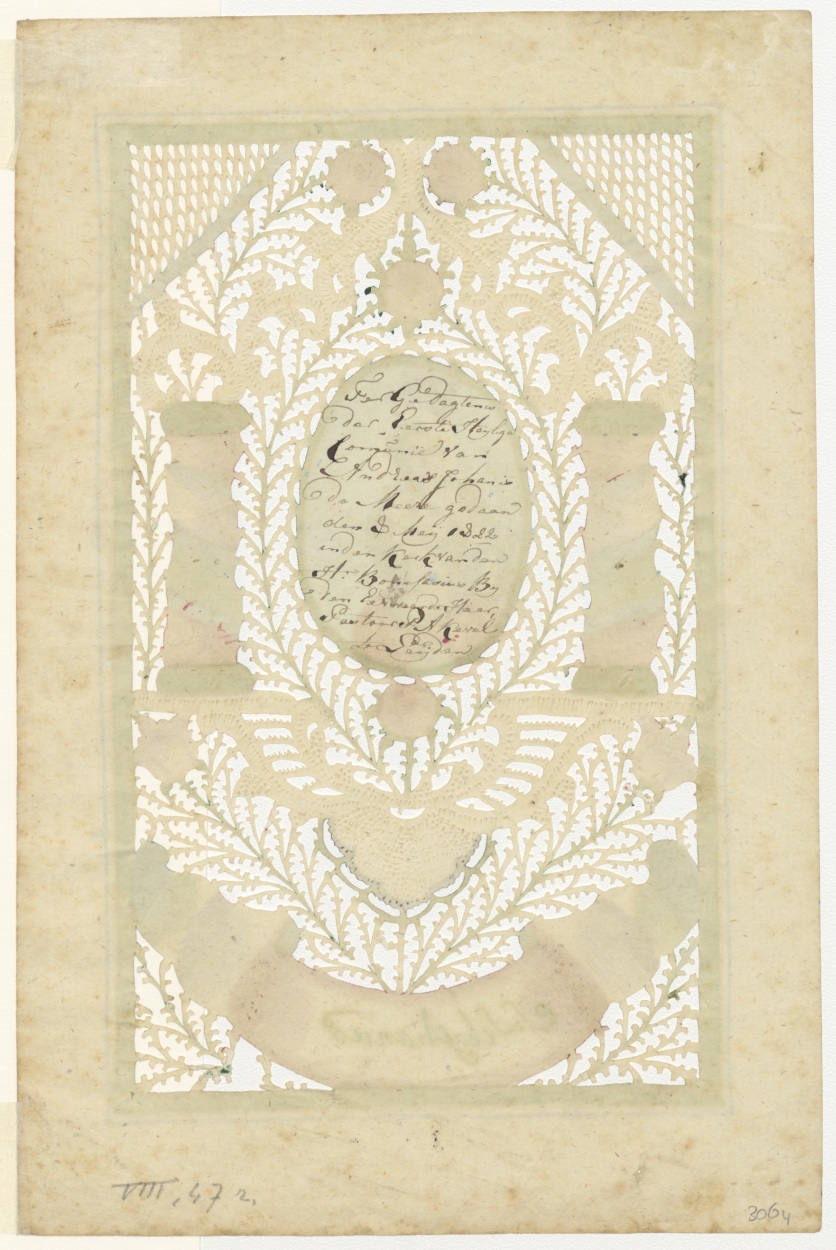 Ter Gedagtenis
der Eerste Heylige
Comunie van
Andreas Johanis
de Meere gedaan
den 8 Meij 1822
in den Kerk van den
Hr. Bonefasius By
den Eerwaarde Heer
Pastoor P J Kevel
te Leijden
VIII, 47 r.
3064